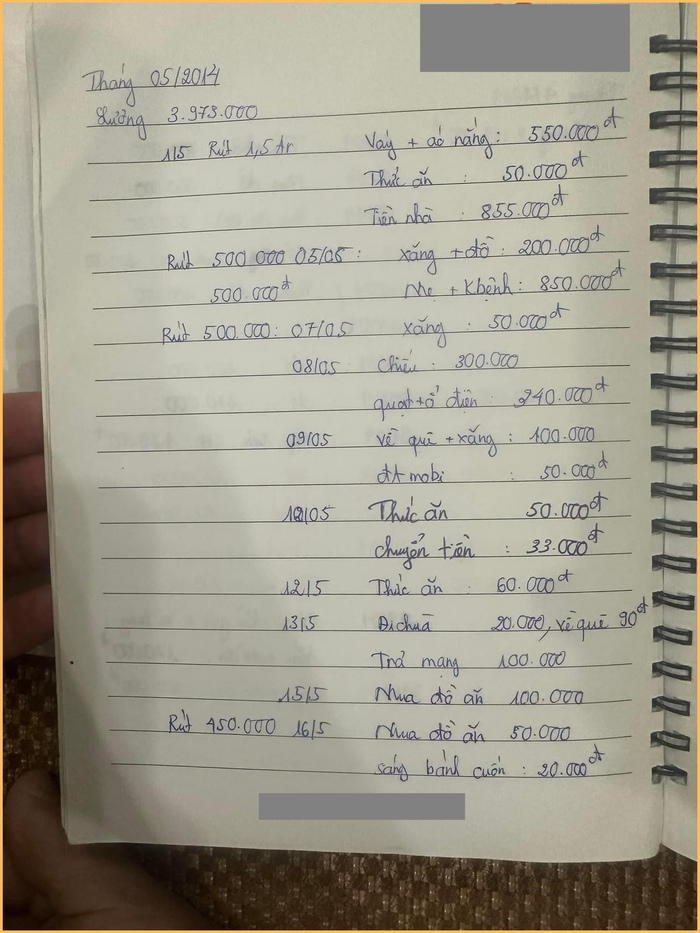 Tháng 05/2014
Lương 3.973.000
1/5 Rút 1,5 tr Váy + áo nắng: 550.000đ
Thức ăn : 50.000đ
Tiền nhà : 855.000đ
Rút 500.000 05/05: xăng + đồ: 200.000đ
500.000đ Mẹ + Kbệnh: 850.000đ
Rút 500.000: 07/05 xăng : 50.000đ
08/05 Chiếu : 300.000
quạt + ổ điện : 240.000đ
09/05 về quê + xăng : 100.000
đt mobi : 50.000đ
/05 Thức ăn 50.000đ
chuyển tiền : 33.000đ
12/5 Thức ăn : 60.000đ
13/5 Đi chùa 20.000, về quê 90đ
Trả mạng 100.000
15/5 Mua đồ ăn 100.000
Rút 450.000 16/5 Mua đồ ăn 50.000
sáng bánh cuốn : 20.000đ